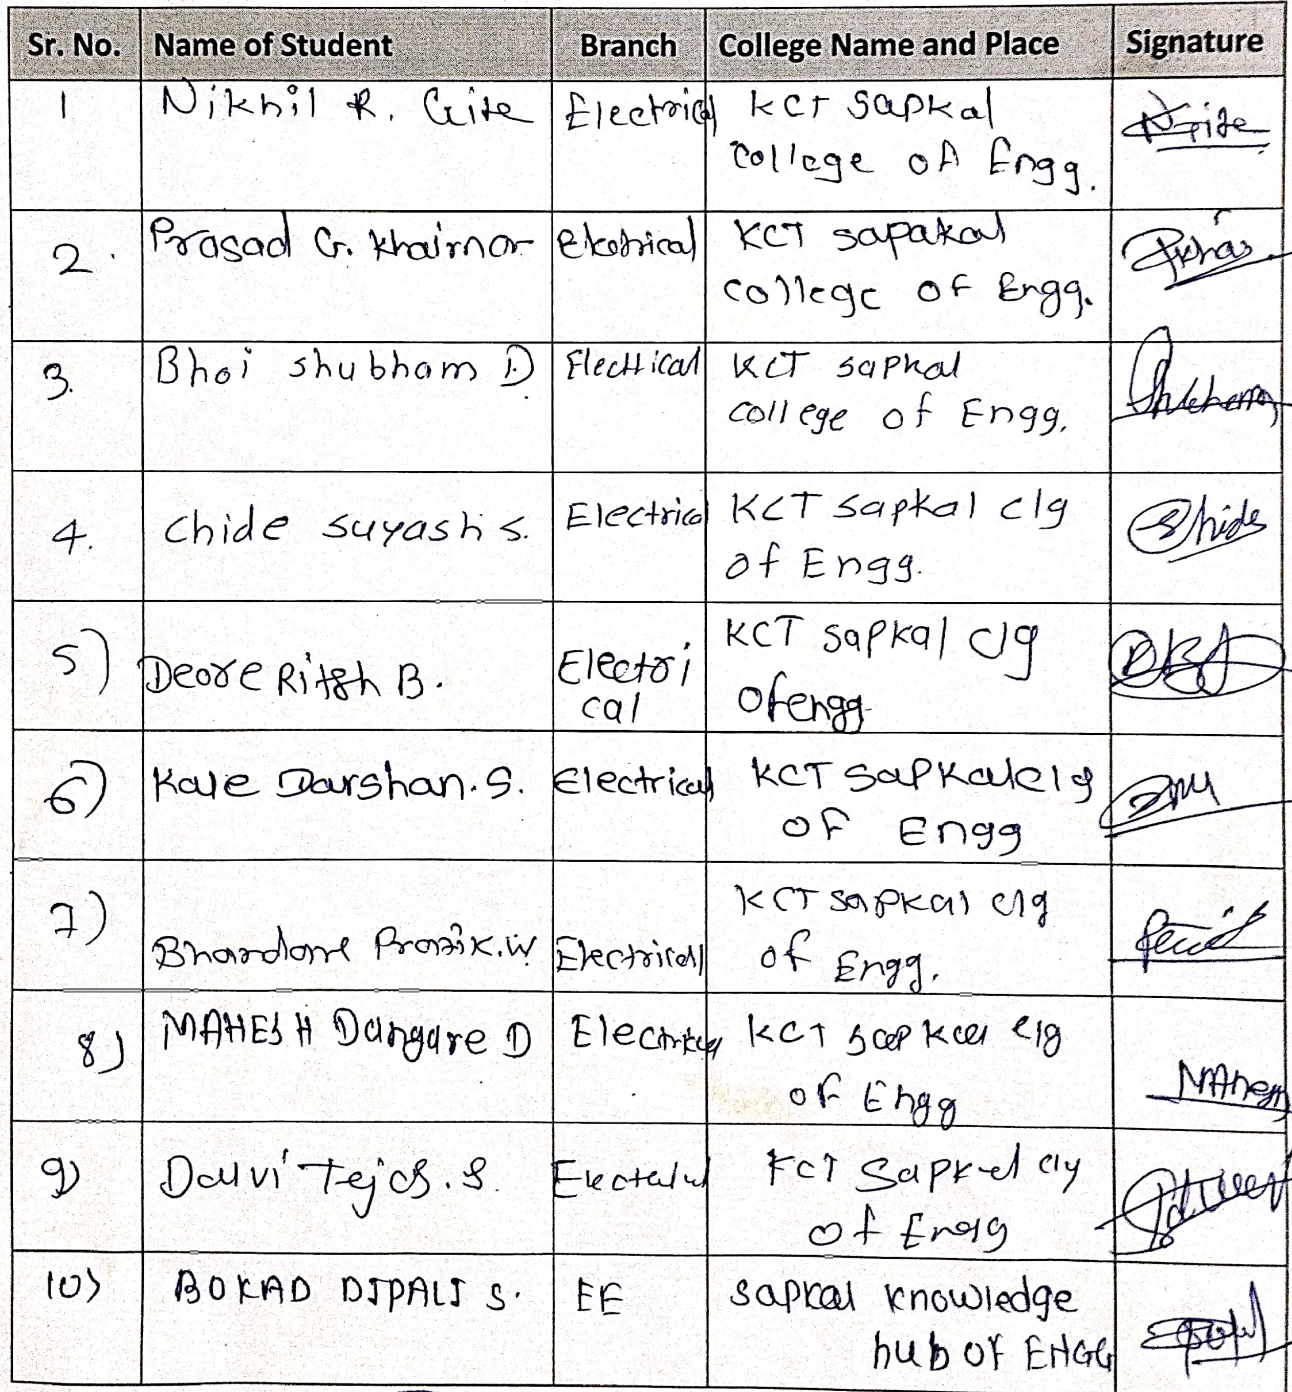 Sr. No. Name of Student Branch College Name and Place Signature
1 Nikhil R. Gite Electrical KCT Sapkal
College of Engg.
2. Prasad G. Khairnar Electrical KCT sapakal
college of Engg.
3. Bhoi shubham D. Electrical KCT sapkal
college of Engg.
4. Chide suyash s. Electrical KCT sapkal clg
of Engg.
5) Deore Ritesh B. Electori
cal KCT sapkal clg
ofengg
6) Kale Darshan.S. Electrical KCT sapkal clg
of Engg
7) Bhardane Pratik.W Electrical KCT sapkal clg
of Engg.
8) MAHESH Dangare D Electrical KCT sapkal clg
of Engg
Mahesh
9) Dalvi Tejas.S. KCT Sapkal clg
of Engg
10) BOKAD DIPALI S. EE sapkal knowledge
hub of ENGG